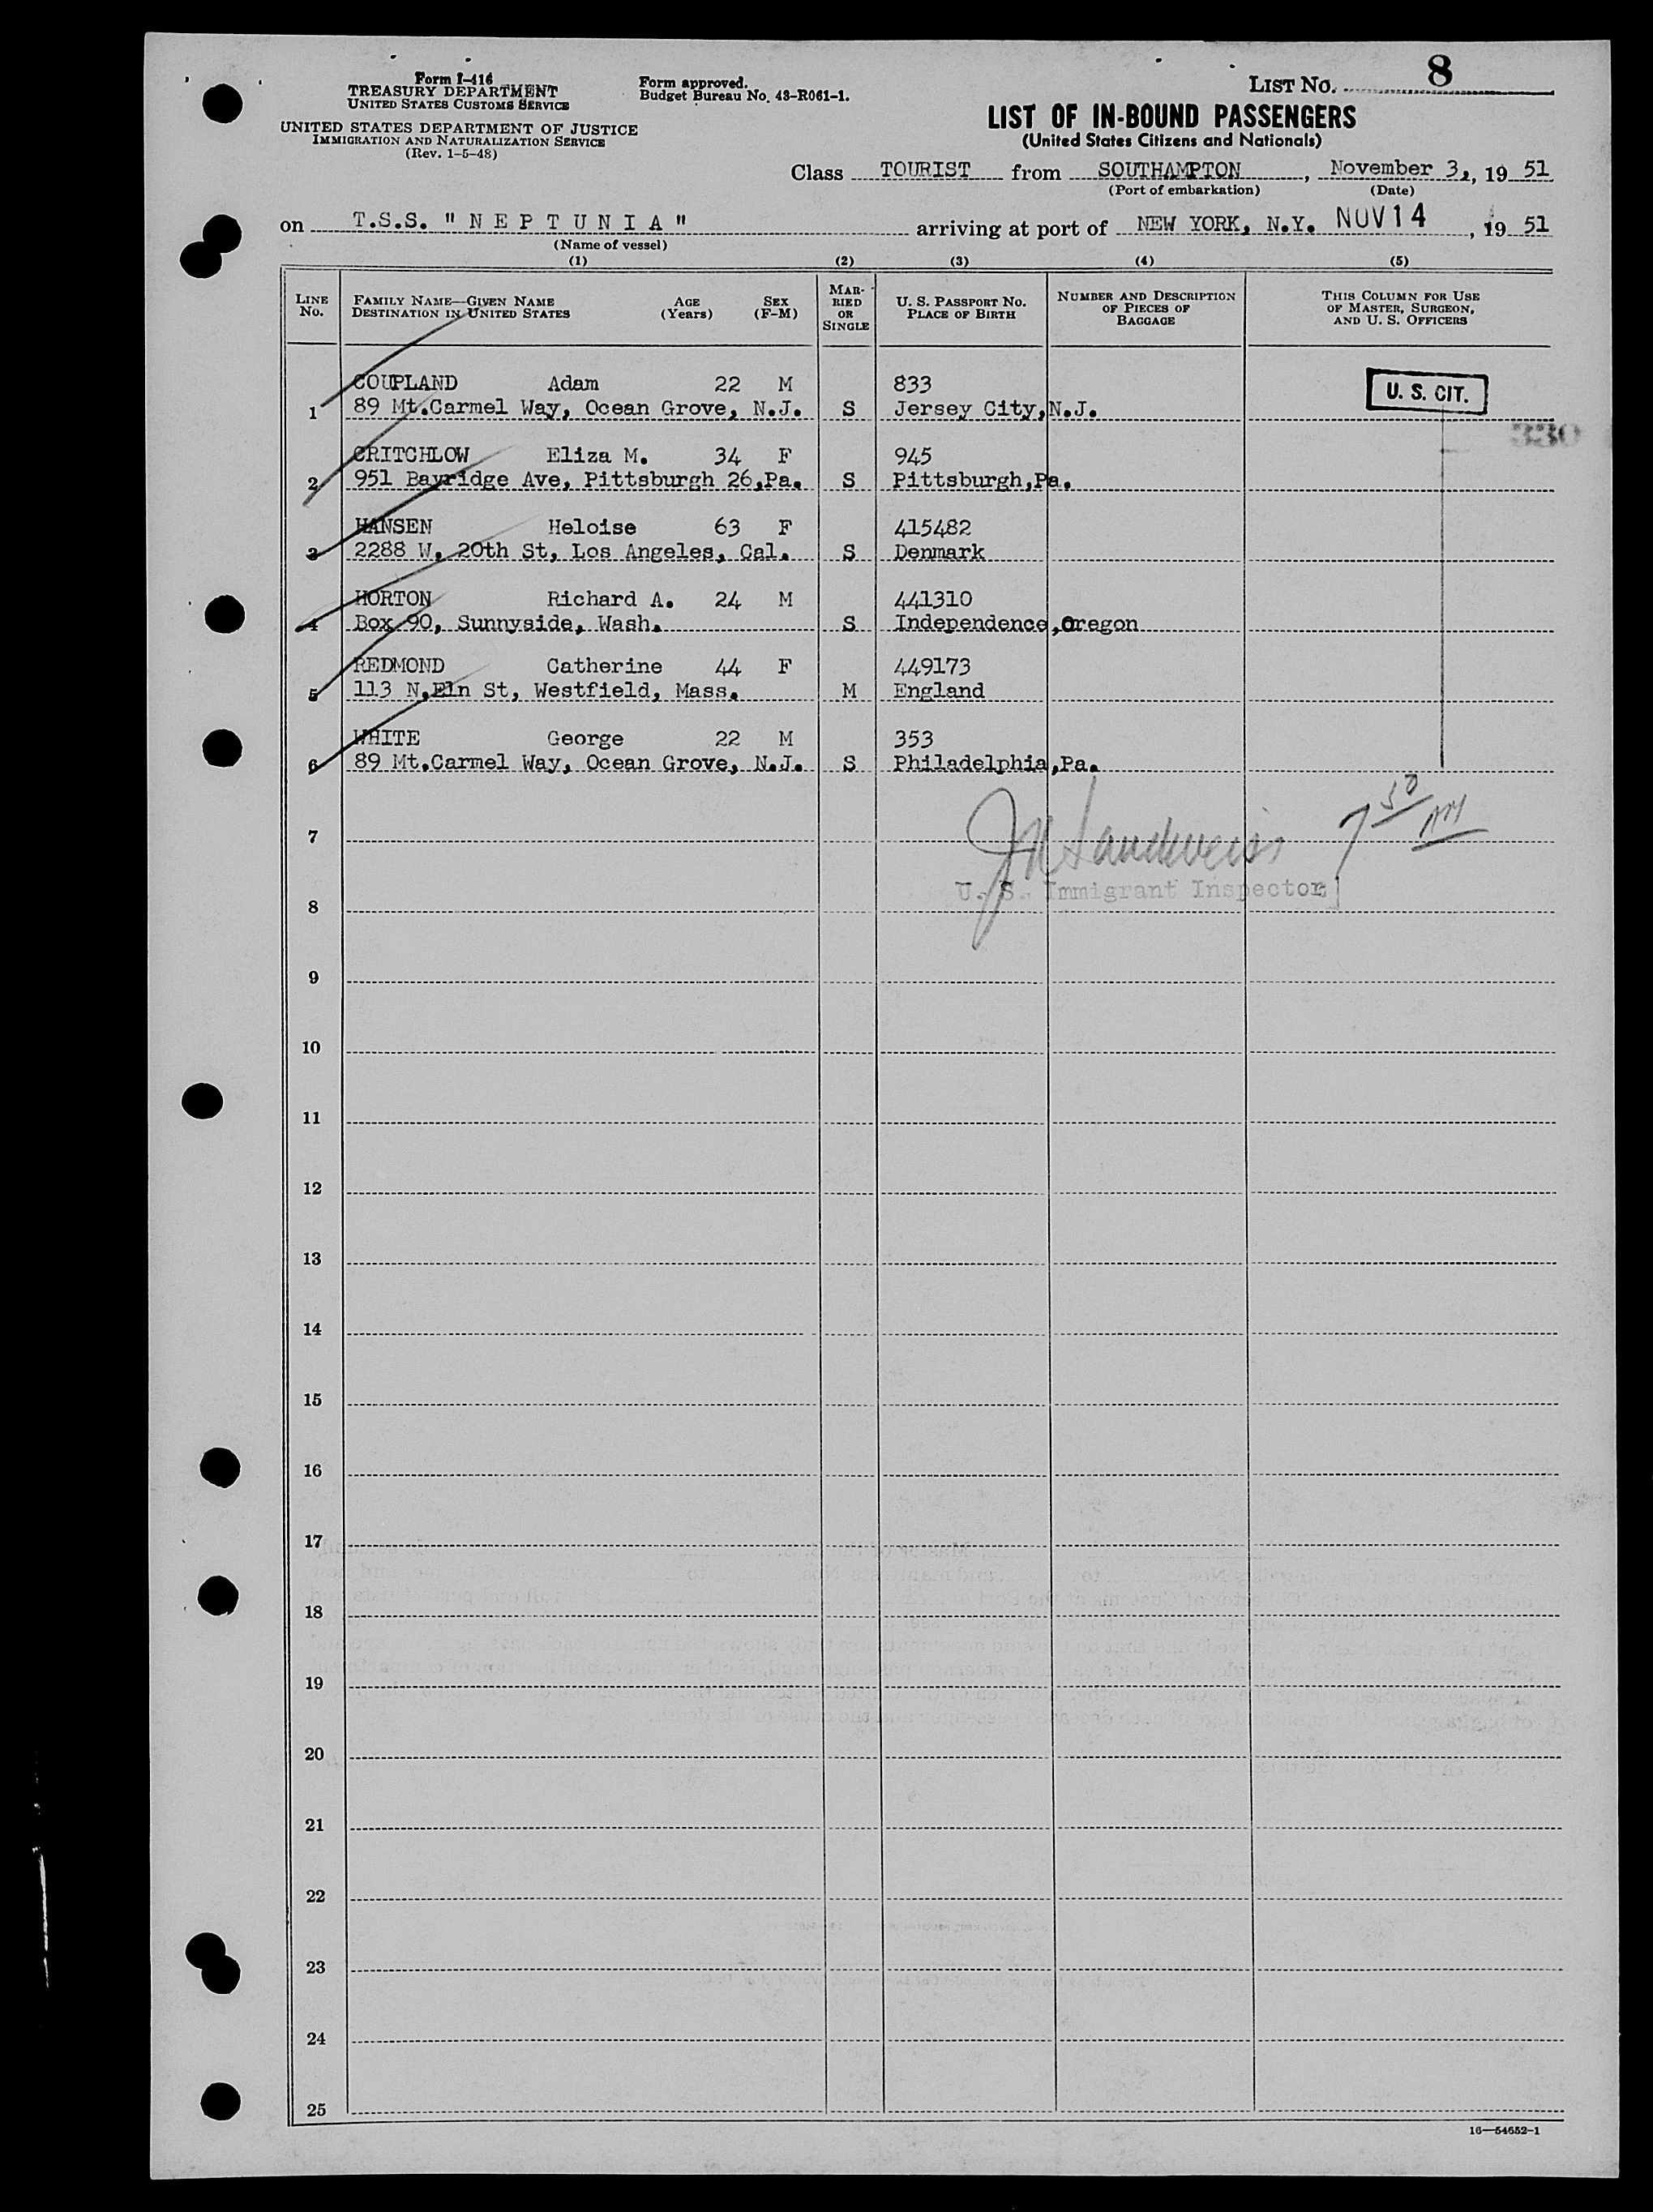 Form I-416
TREASURY DEPARTMENT
UNITED STATES CUSTOMS SERVICE
UNITED STATES DEPARTMENT OF JUSTICE
IMMIGRATION AND NATURALIZATION SERVICE
(Rev. 1-5-48)
Form approved.
Budget Bureau No. 43-R061-1.
LIST NO. 8
LIST OF IN-BOUND PASSENGERS
(United States Citizens and Nationals)
Class TOURIST from SOUTHAMPTON, November 3, 19 51
(Port of embarkation) (Date)
on T.S.S. "NEPTUNIA" arriving at port of NEW YORK, N.Y. NOV 14, 19 51
(Name of vessel)
(1) (2) (3) (4) (5)
LINE NO. FAMILY NAME—GIVEN NAME DESTINATION IN UNITED STATES AGE (Years) SEX (F-M) MARRIED OR SINGLE U. S. PASSPORT NO. PLACE OF BIRTH NUMBER AND DESCRIPTION OF PIECES OF BAGGAGE THIS COLUMN FOR USE OF MASTER, SURGEON, AND U. S. OFFICERS
COUPLAND Adam 22 M 833 U. S. CIT.
1 89 Mt.Carmel Way, Ocean Grove, N.J. S Jersey City,N.J.
330
CRITCHLOW Eliza M. 34 F 945
2 951 Bayridge Ave, Pittsburgh 26,Pa. S Pittsburgh,Pa.
HANSEN Heloise 63 F 415482
3 2288 W. 20th St, Los Angeles, Cal. S Denmark
HORTON Richard A. 24 M 441310
4 Box 90, Sunnyside, Wash. S Independence,Oregon
REDMOND Catherine 44 F 449173
5 113 N.Eln St, Westfield, Mass. M England
WHITE George 22 M 353
6 89 Mt.Carmel Way, Ocean Grove, N.J. S Philadelphia,Pa.
7 Sandweiss 7 30 AM
U. S. Immigrant Inspector
8
9
10
11
12
13
14
15
16
17
18
19
20
21
22
23
24
25
16—54652-1